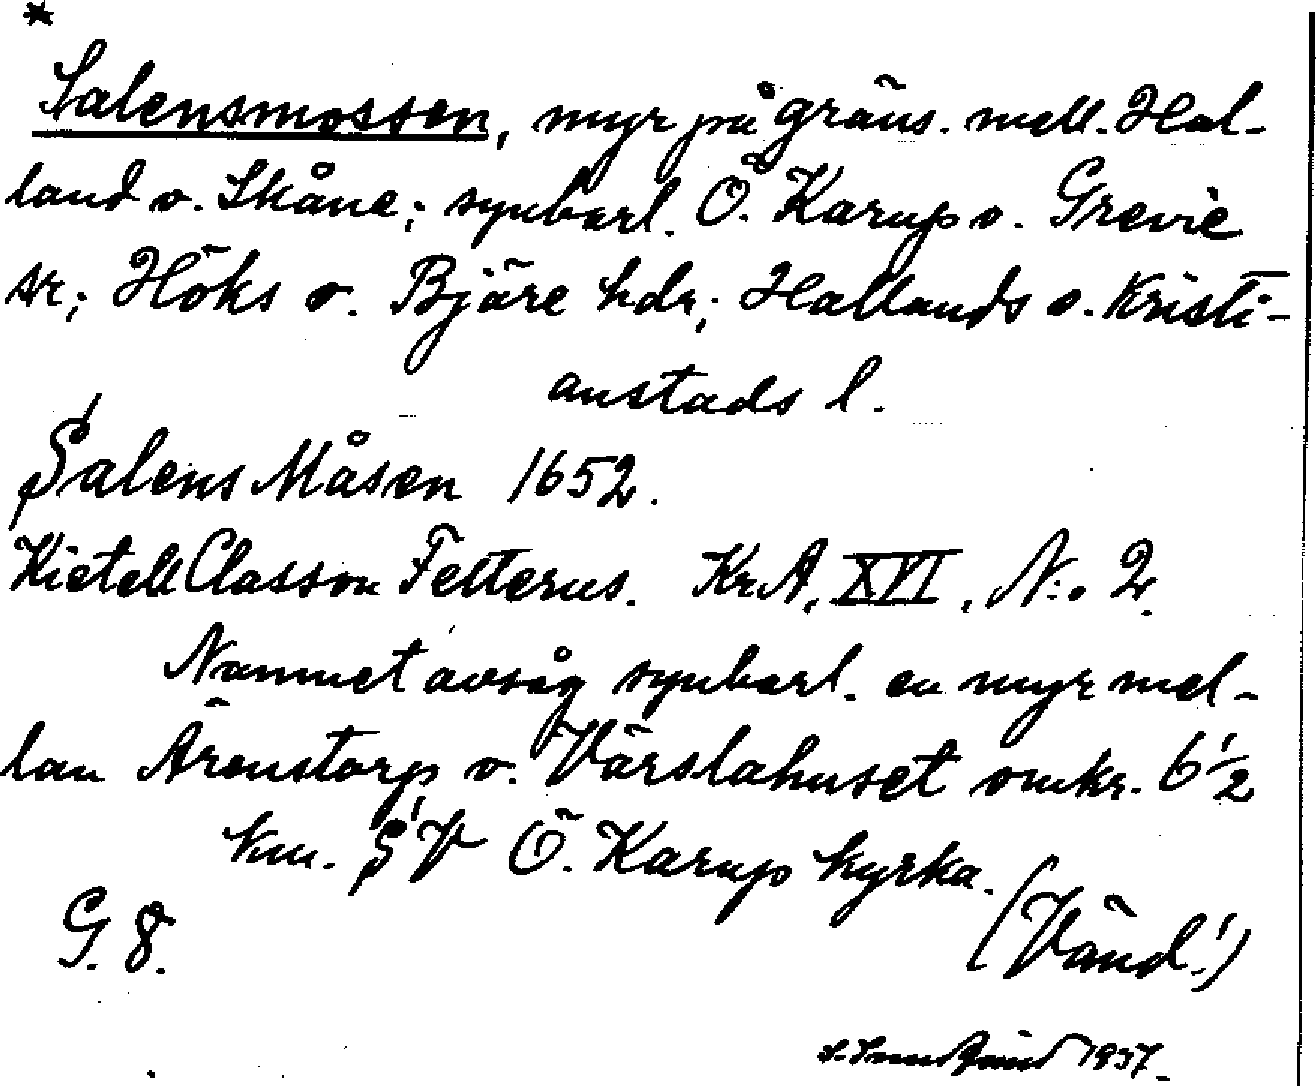 *
Salensmossen, myr på gräns. mell. Hal-
land o. Skåne; synbarl. Ö. Karup o. Grevie
sr; Höks o. Bjäre hdr; Hallands o. Kristi-
anstads l.
Salens Måsen 1652.
Kietell Classon Felterus. KrA, XVI, N:o 2.
Namnet avsåg synbarl. en myr mel-
lan Ärenstorp o. Värslahuset omkr. 6 1/2
km. SV Ö. Karup kyrka.
(Vänd!)
G. 8.
1937